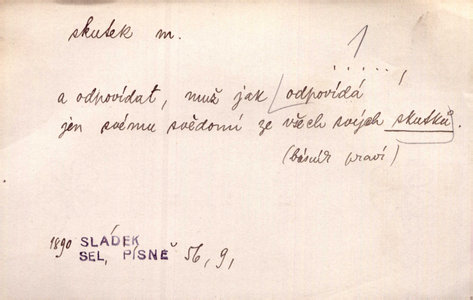 skutek m.
1
.....,
a odpovídat, muž jak odpovídá
jen svému svědomí ze všech svých skutků.
(básník praví)
1890 SLÁDEK
SEL. PÍSNĚ 56, 9,